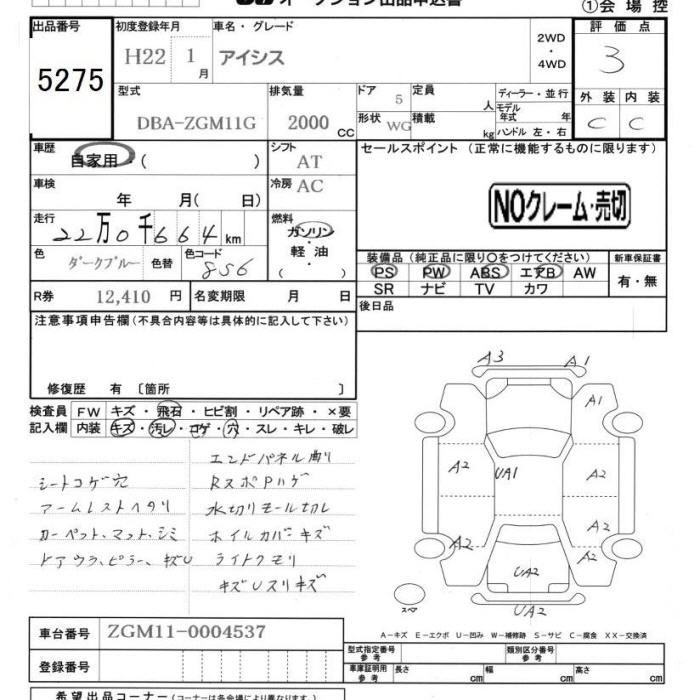 オークション出品申込書
①会場控
出品番号
5275
初度登録年月
H22 1月
車名・グレード
アイシス
2WD
・
4WD
評価点
3
型式
DBA-ZGM11G
排気量
2000 CC
ドア 5
形状 WG
定員 人
積載 kg
ディーラー・並行
モデル年式 年
ハンドル 左・右
外装 内装
C C
車歴
自家用・( )
シフト AT
車検
年 月( 日)
冷房 AC
走行
22万0千664km
燃料
ガソリン
・
軽油
( )
色 ダークブルー 色替
色コード 8S6
R券 12,410円
名変期限 月 日
セールスポイント (正常に機能するものに限ります)
NOクレーム・売切
装備品(純正品に限り○をつけてください)
PS PW ABS エアB AW
SR ナビ TV カワ
新車保証書
有・無
後日品
注意事項申告欄(不具合内容等は具体的に記入して下さい)
修復歴 有〔箇所 〕
検査員記入欄
FW キズ・飛石・ヒビ割・リペア跡・×要
内装 キズ・汚レ・コゲ・穴・スレ・キレ・破レ
エンドパネル曲り
シートコゲ穴 RスポPハゲ
アームレストヘタリ 水切リモール切レ
カーペット、マット、シミ ホイルカバーキズ
ドアウラ、ピラー、キズU ライトクモリ
キズUスリキズ
A3 A1
A1
A2 UA1 A2
A2
A2 A2
UA2
スペ UA2
A-キズ E-エクボ U-凹み W-補修跡 S-サビ C-腐食 XX-交換済
車台番号 ZGM11-0004537
登録番号
型式指定番号 参考
類別区分番号 参考
車庫証明用 参考
長さ cm 幅 cm 高さ cm
希望出品コーナー(コーナーは各会場により異なります。)